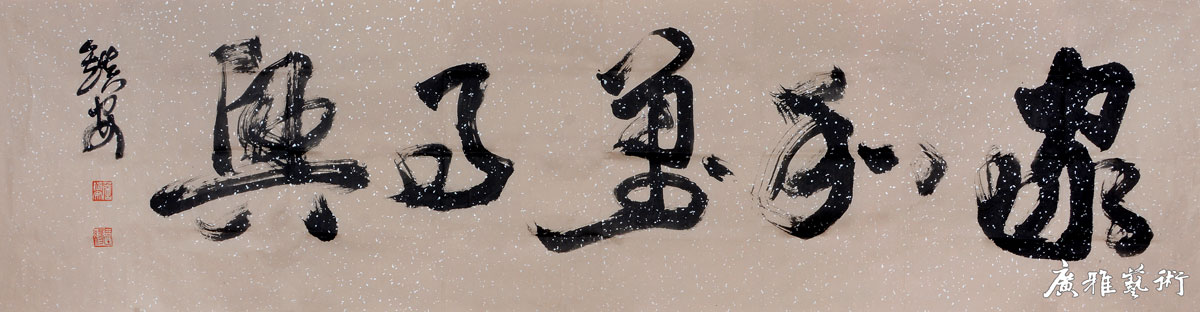 家和萬事興
廣雅藝術